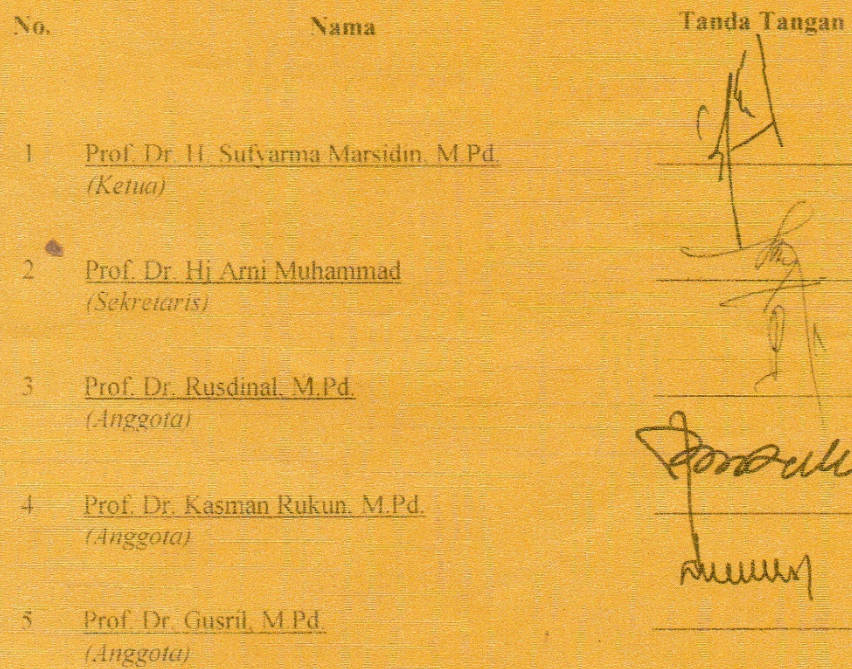 No. Nama Tanda Tangan
1 Prof. Dr. H. Sufyarma Marsidin, M.Pd.
(Ketua)
2 Prof. Dr. Hj Arni Muhammad
(Sekretaris)
3 Prof. Dr. Rusdinal, M.Pd.
(Anggota)
4 Prof. Dr. Kasman Rukun, M.Pd.
(Anggota)
5 Prof. Dr. Gusril, M.Pd.
(Anggota)